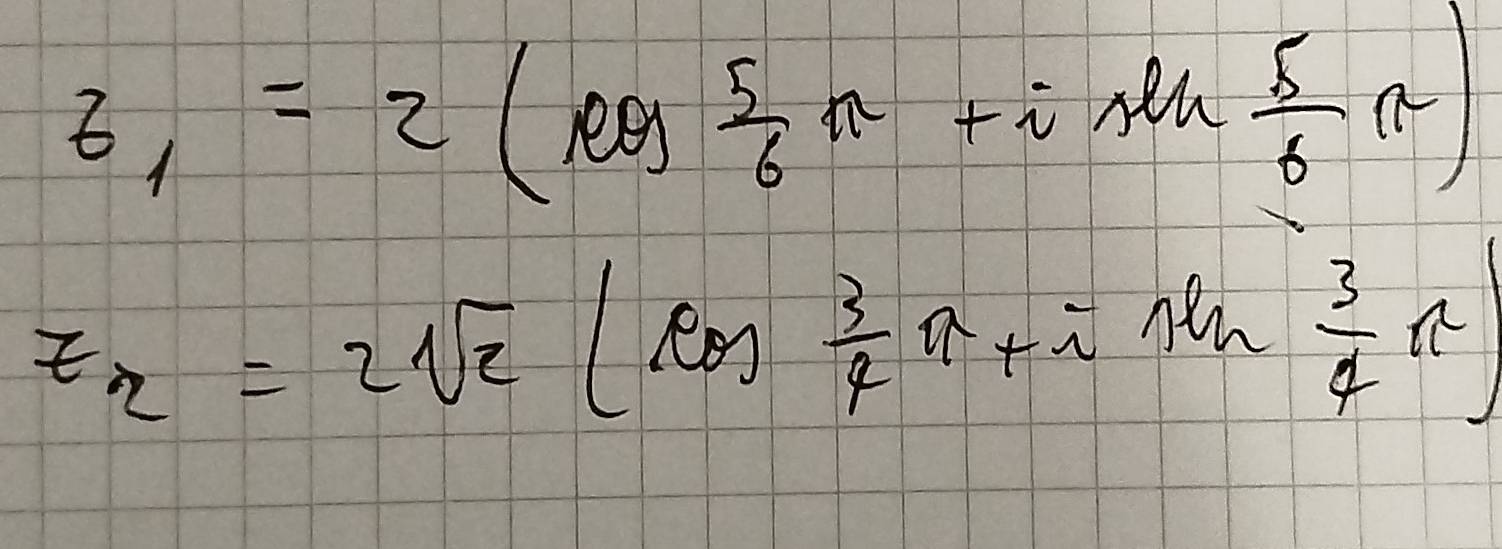 z₁ = 2 (cos 5/6 π + i sen 5/6 π)
z₂ = 2√2 (cos 3/4 π + i sen 3/4 π)